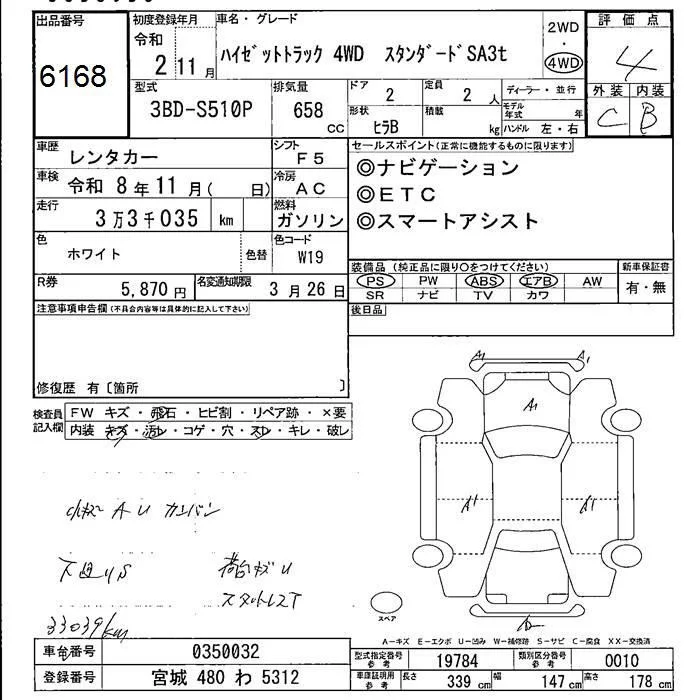 出品番号
6168
初度登録年月
令和
2 11 月
車名・グレード
ハイゼットトラック 4WD スタンダードSA3t
2WD
・
4WD
評価点
4
外装 内装
C B
型式
3BD-S510P
排気量
658
CC
ドア
2
定員
2 人
ディーラー・並行
形状
ヒラB
積載
kg
モデル年式 年
ハンドル 左・右
車歴
レンタカー
シフト
F5
車検
令和 8 年 11 月( 日)
冷房
AC
走行
3万3千035 km
燃料
ガソリン
色
ホワイト
色替
色コード
W19
R券
5,870 円
名変通知期限
3 月 26 日
セールスポイント(正常に機能するものに限ります)
◎ナビゲーション
◎ETC
◎スマートアシスト
装備品 (純正品に限り○をつけてください)
PS PW ABS エアB AW
SR ナビ TV カワ
新車保証書
有・無
後日品
注意事項申告欄(不具合内容等は具体的に記入して下さい)
修復歴 有〔箇所 〕
検査員記入欄
FW キズ・飛石・ヒビ割・リペア跡・×要
内装 キズ・汚レ・コゲ・穴・スレ・キレ・破レ
小キズ A U カンバン
下廻りS
荷台キズ U
スタットレスT
33039km
A1 A1
A1
A1 A1
スペア
A-キズ E-エクボ U-凹み W-補修跡 S-サビ C-腐食 XX-交換済
車台番号
0350032
登録番号
宮城 480 わ 5312
型式指定番号
参考
19784
類別区分番号
参考
0010
車庫証明用
参考
長さ
339 cm
幅
147 cm
高さ
178 cm